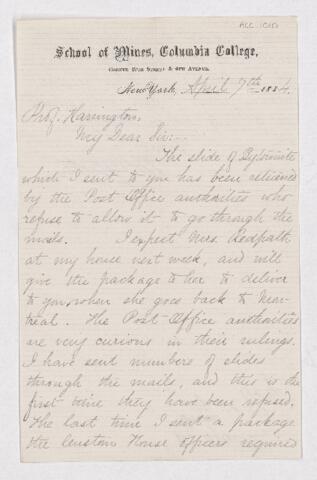 ACC 1010
School of Mines, Columbia College,
Corner 49th Street & 4th Avenue.
New York, April 7th 1884
Prof. Harrington,
My Dear Sir:—
The slide of
which I sent to you has been returned
by the Post Office authorities who
refuse to allow it to go through the
mails. I expect Mrs. Redpath
at my house next week, and will
give the package to her to deliver
to you, when she goes back to Mon-
treal. The Post-Office authorities
are very curious in their rulings.
I have sent numbers of slides
through the mails, and this is the
first time they have been refused.
The last time I sent a package
the Custom House officers required